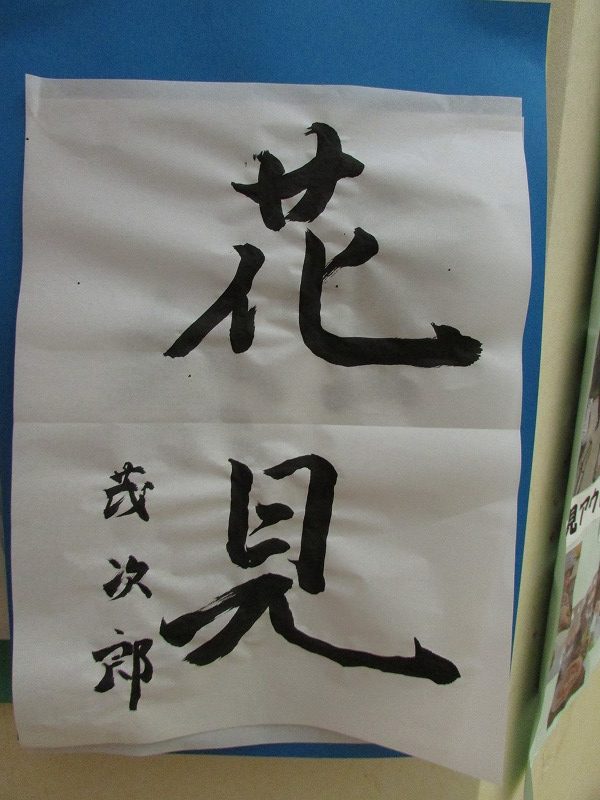 花見
茂次郎
見アウ